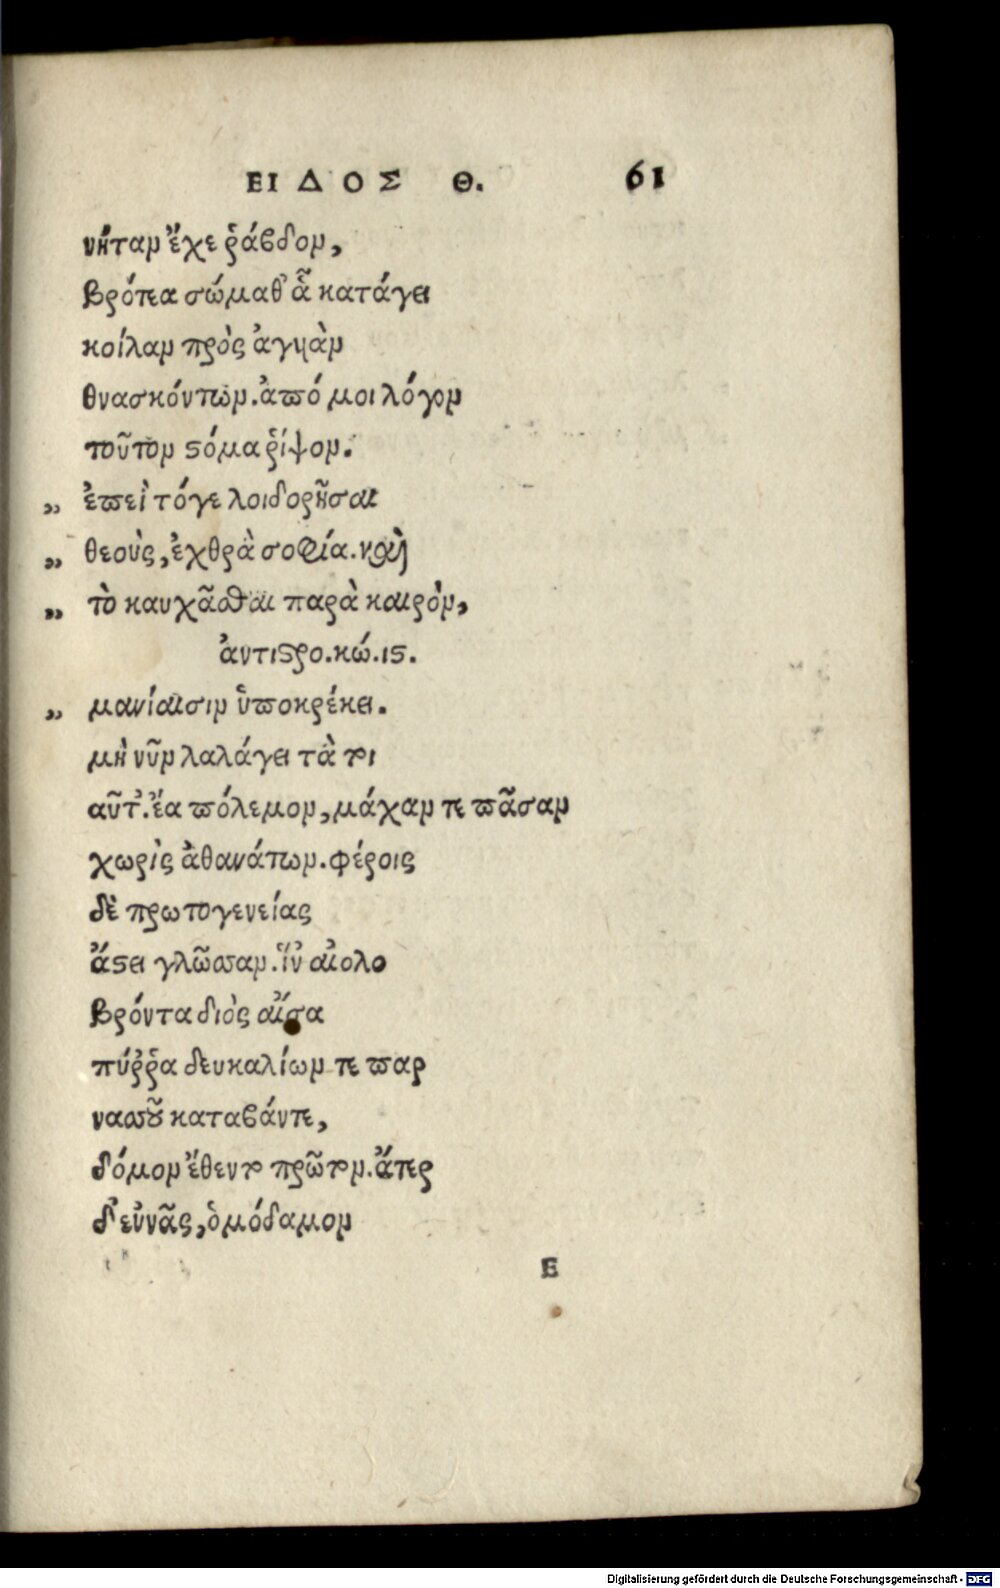 ΕΙΔΟΣ Θ. 61
νήταν ἔχε ῥάβδον,
βρότεα σώμαθ' ᾇ κατάγει
κοίλαν πρὸς ἀγυιὰν
θνασκόντων. ἀπό μοι λόγον
τοῦτον στόμα ῥίψον.
„ ἐπεὶ τόγε λοιδορῆσαι
„ θεοὺς, ἐχθρὰ σοφία. καὶ
„ τὸ καυχᾶσθαι παρὰ καιρὸν,
ἀντιστρο. κώ. ιϛ.
„ μανίαισιν ὑποκρέκει.
μὴ νῦν λαλάγει τὰ τοι
αῦτ'. ἔα πόλεμον, μάχαν τε πᾶσαν
χωρὶς ἀθανάτων. φέροις
δὲ πρωτογενείας
ἄστει γλῶσσαν. ἵν' αἰολο
βρόντα διὸς αἴσα
πύῤῥα δευκαλίων τε παρ
νασσοῦ καταβάντε,
δόμον ἔθεντο πρῶτον. ἄτερ
δ' εὐνᾶς, ὁμόδαμον
E
Digitalisierung gefördert durch die Deutsche Forschungsgemeinschaft - DFG